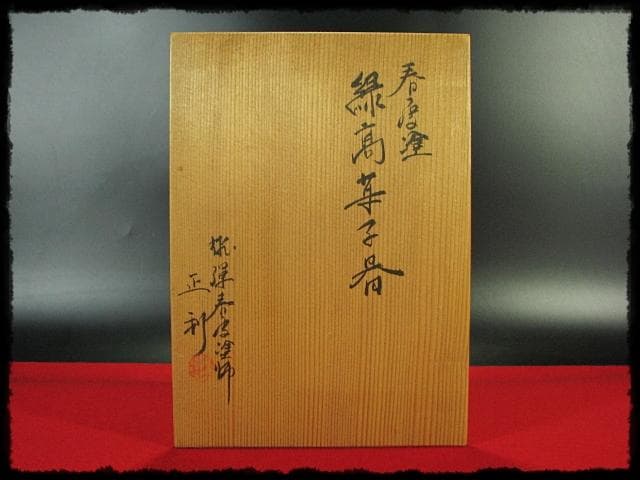 春慶塗
縁高菓子器
飛騨春慶塗師
正利